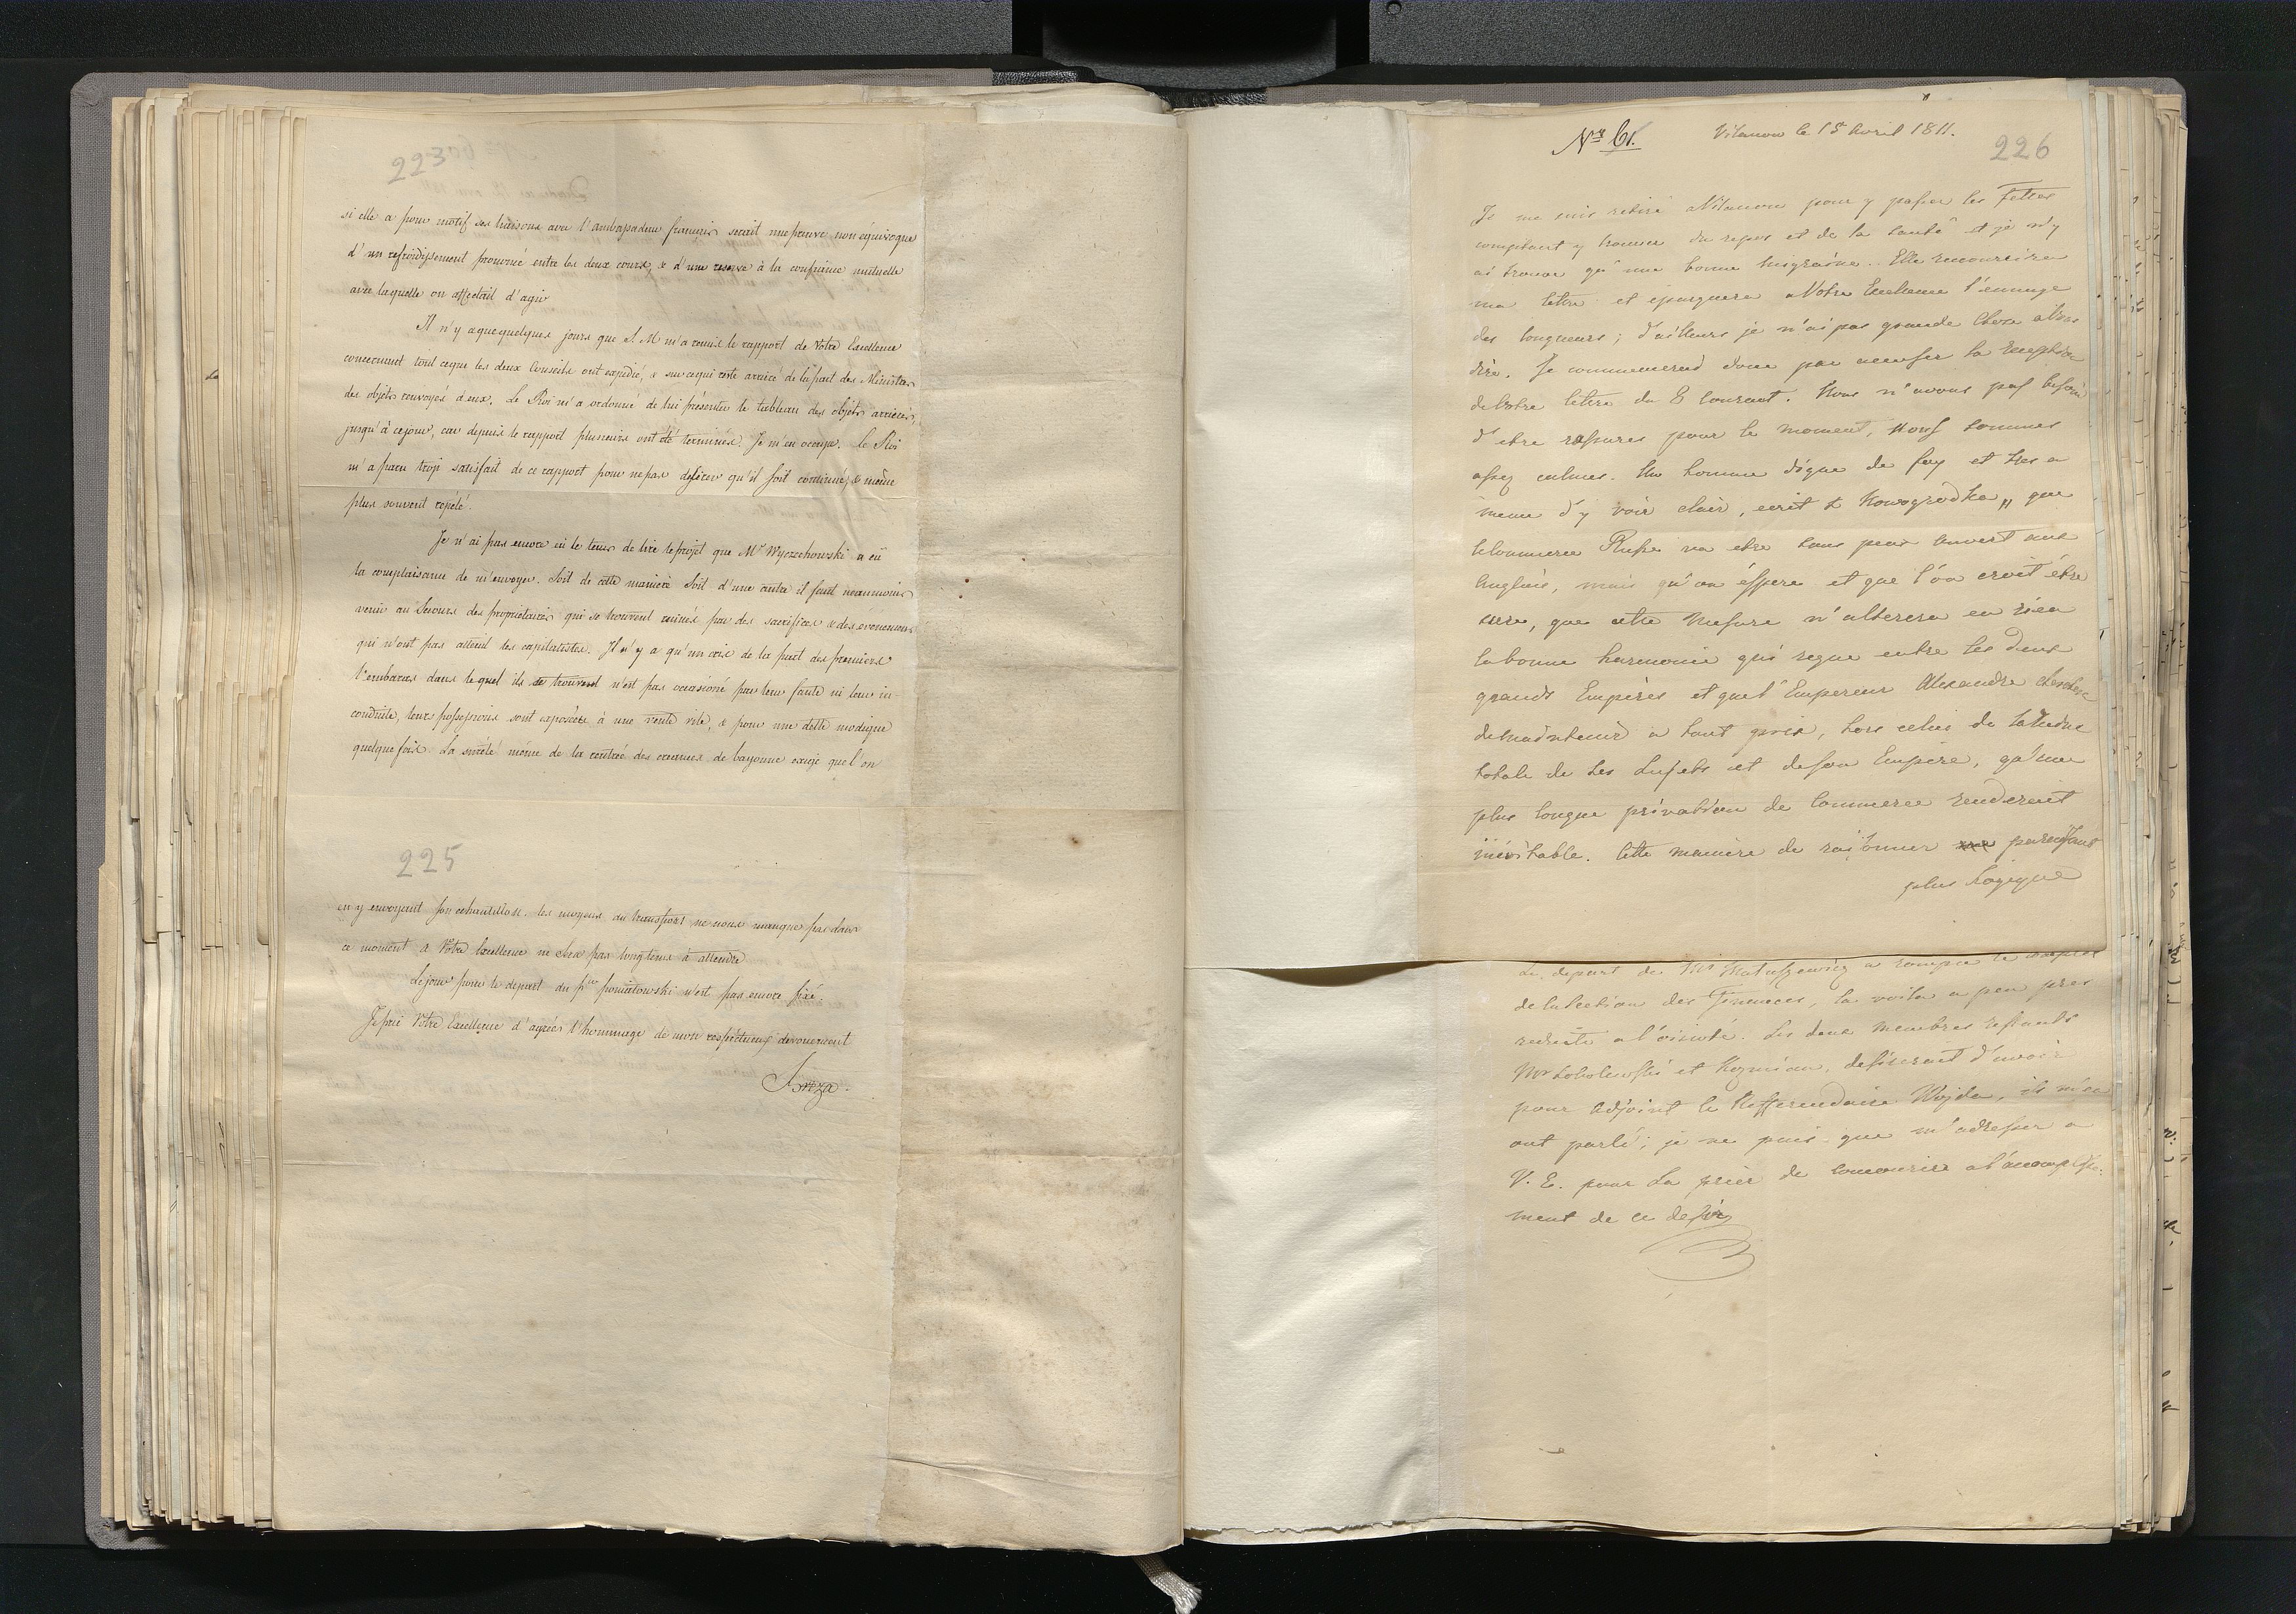 223
si elle a pour motif ses liaisons avec l'ambassadeur francois serait une preuve non equivoque
d'un refroidissement prononcé entre les deux cours, & d'une reserve à la confiance mutuelle
avec laquelle on affectait d'agir
Il n'y a que quelques jours que S. M m'a remis le rapport de Votre Excellence
concernant tout ceque les deux Conseils ont expedié, & sur cequi reste arrieré de la part des Ministres
des objets renvoyés à eux. Le Roi m'a ordonné de lui présenter le tableau des objets arrierés,
jusqu'à cejour, car depuis le rapport plusieurs ont été terminés. Je m'en occupe. le Roi
m'a paru trop satisfait de ce rapport pour nepas desirer qu'il soit continué, & même
plus souvent repété.
Je n'ai pas encore eû le tems de lire leprojet que Mr Wyczechowski a eû
la complaisance de m'envoyer. Soit de cette manière soit d'une autre il faut neanmoins
venir au secours des proprietaires qui se trouvent ruinés par des sacrifices & des évenemens
qui n'ont pas atteint les capitalistes. Il n'y a qu'un cris de la part des premiers
l'embaras dans lequel ils se trouvent n'est pas occasioné par leur faute ni leur in-
conduite, leurs possessions sont exposées à une vente vile, & pour une dette modique
quelque fois. La sureté même de la rentrée des creances de bayonne exige que l'on
225
en y envoyant son echantillon. les moyens du transport ne nous manque pas dans
ce moment & Votre Excellence ne sera pas longtems à attendre
Lejour pour le depart du pce poniatowski n'est pas encore fixé.
Je prie Votre Excellence d'agréer l'hommage de mon respectueux devouement
Breza.
Nr 61.
Vilanow le 15 Avril 1811.
226
Je me suis retiré a Vilanow pour y passer les Fettes
comptant y trouver du repos et de la santé et je n'y
ai trouvé qu'une bonne migraine. Elle racourcira
ma lettre et épargnera a Votre Excellence l'ennuye
des longueurs; d'ailleurs je n'ai pas grande chose a Vous
dire. Je commencerai donc par accuser la reception
de Votre lettre du 8 Courant. Nous n'avons pas besoin
d'etre rassurés pour le moment, nous sommes
assez calmes. Un homme digne de foy et tres a
meme d'y voir clair, ecrit de Nowogrodka „ que
le Commerce Russe va etre sous peu ouvert aux
Anglais, mais qu'on éspere et que l'on croit étre
sure, que cette mesure n'alterera en rien
la bonne harmonie qui regne entre les deux
grands Empires et que l'Empereur Alexandre cherchera
de maintenir a tout prix, hors celui de la ruine
totale de ses sujets et de son Empire, qu'une
plus longue privation de Commerce renderait
inévitable. Cette maniere de raisonner parait
plus Logique
Le depart de Mr Matuszewicz a rompu le
de la Section des Finances, la voila a peu pres
reduite a l'oisiveté. Les deux membres restants
Mrs Sobolewski et Kozmian, desireraient d'avoir
pour adjoint le Refferendaire Wojda, ils m'en
ont parlé; je ne puis que m'adresser a
V. E. pour La prier de concourir a l'acomplisse-
ment de ce desir